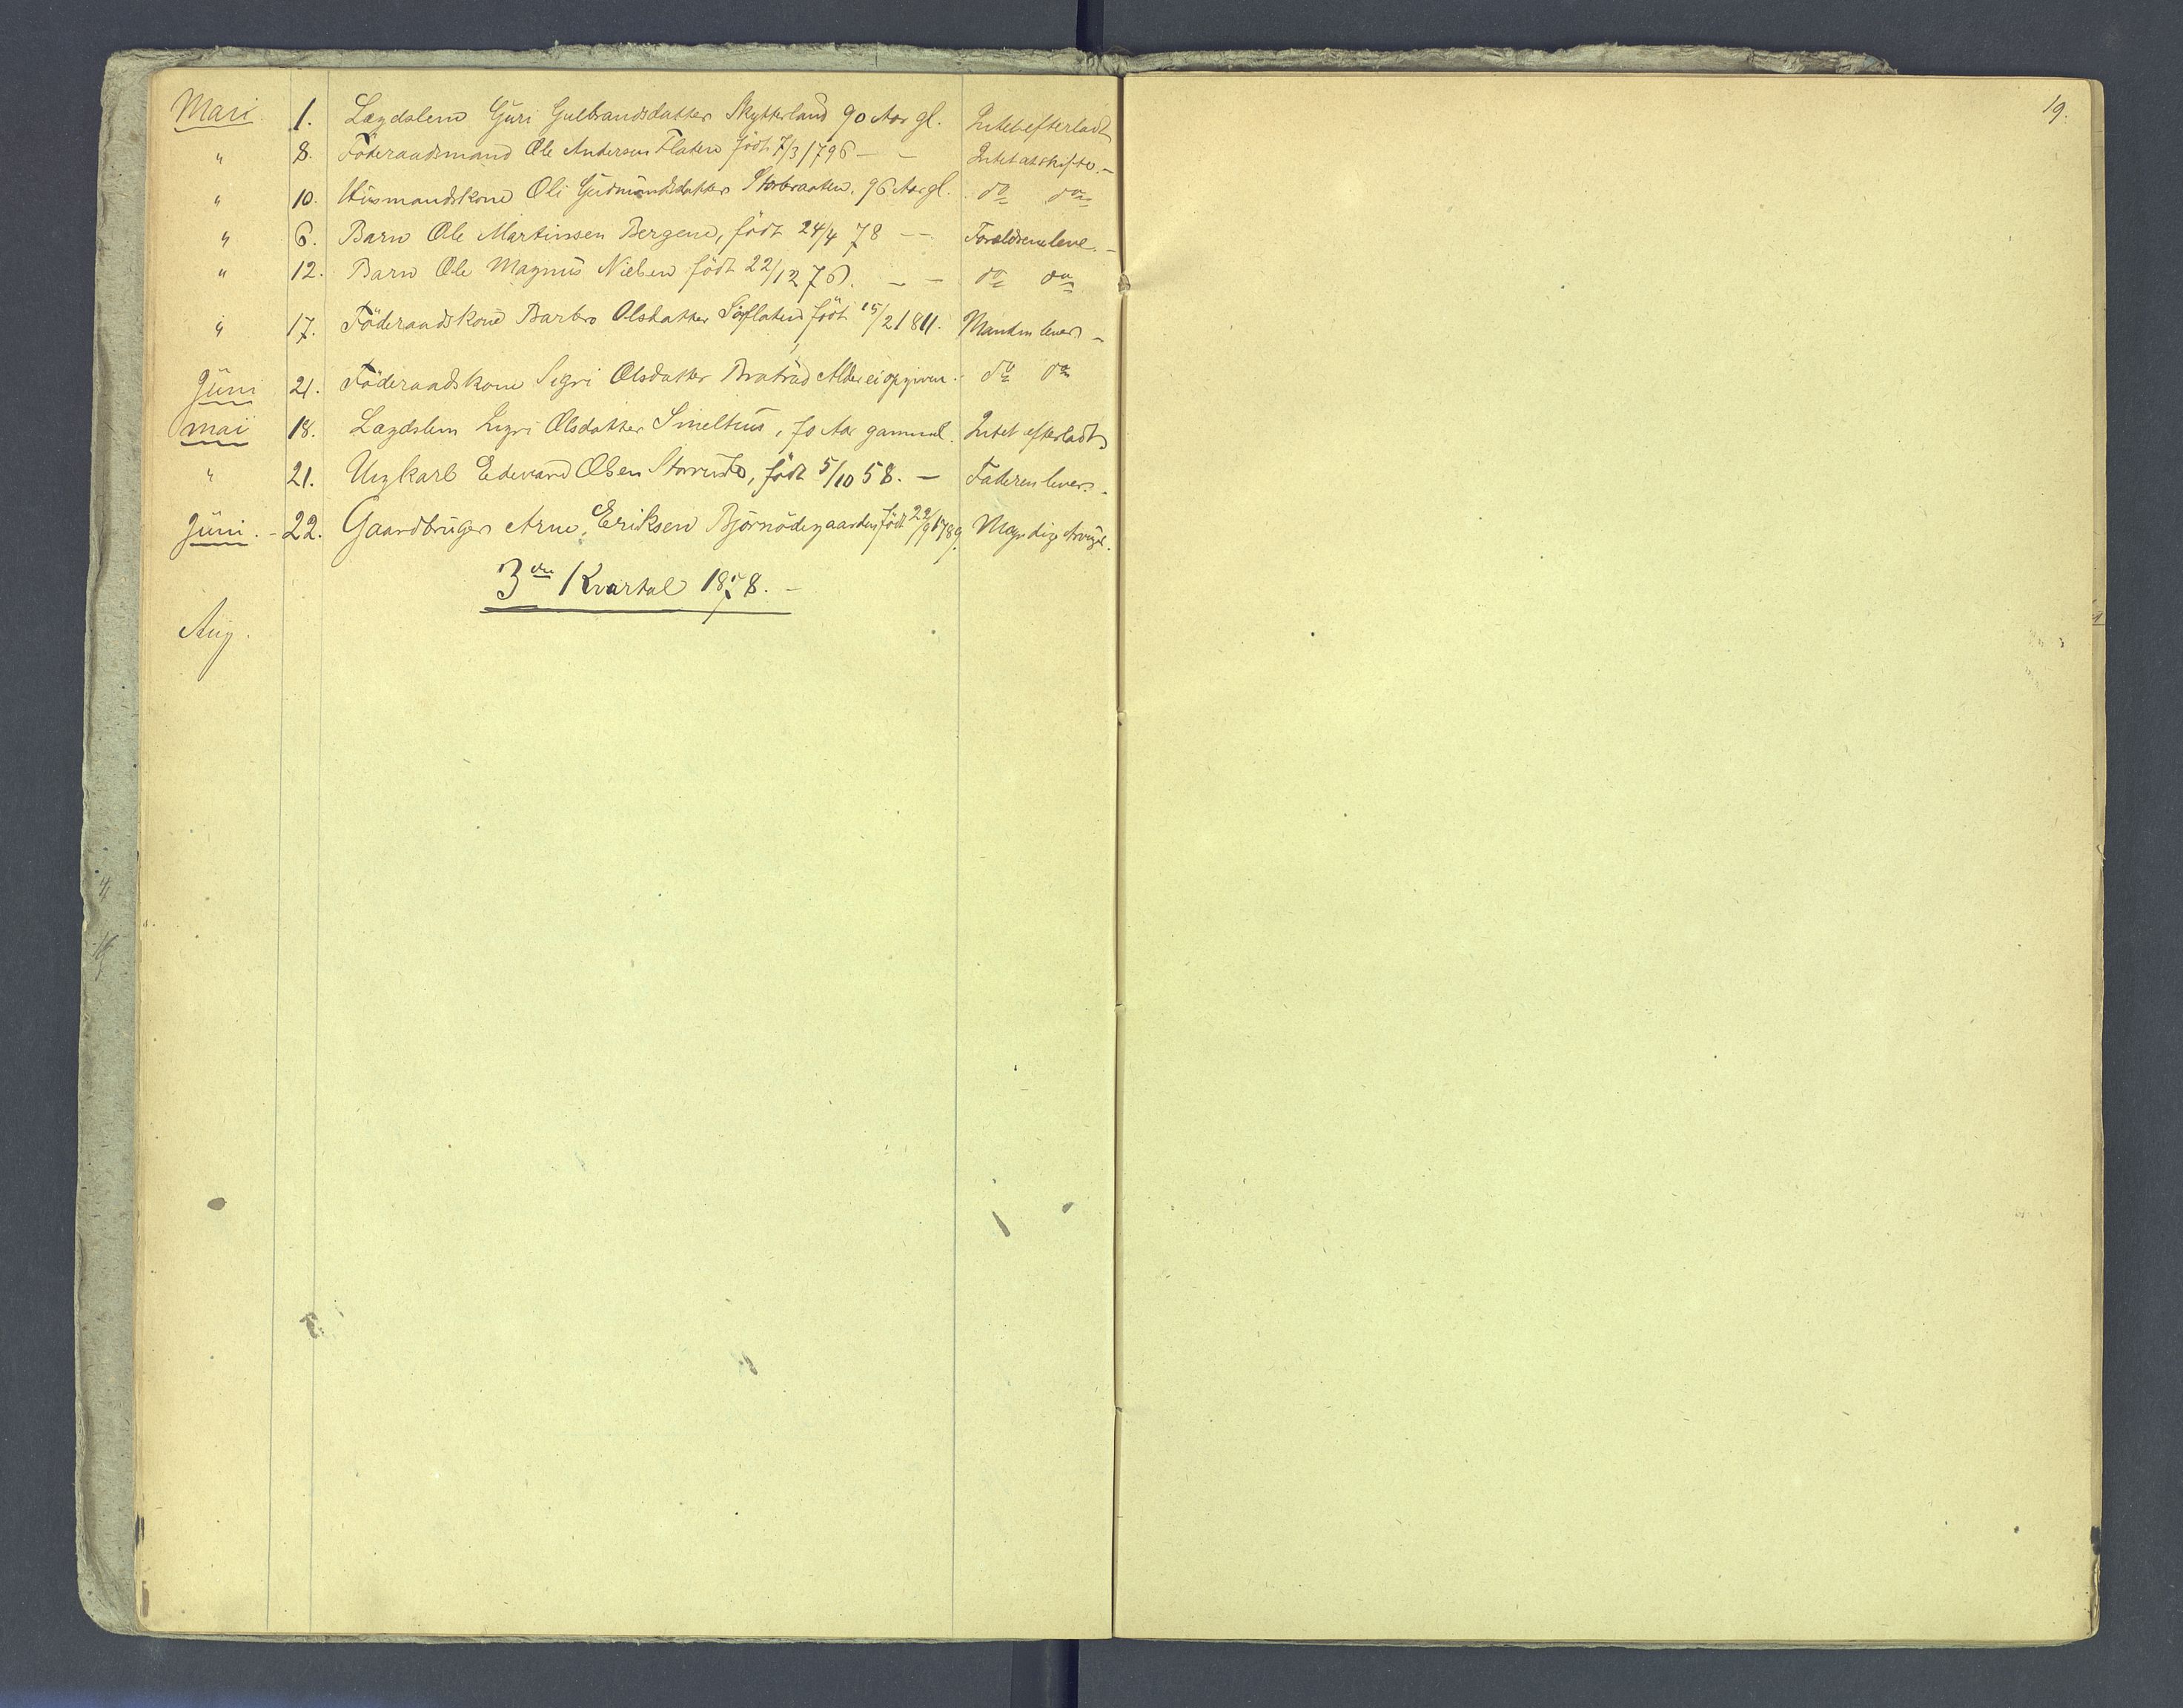 19.
Mari 1. Lægdslem Guri Gulbrandsdatter Skytterland 90 Aar gl. Intet efterladt
" 8. Föderaadsmand Ole Andersen Flaten födt 7/3 1796 — — Intet at skifte. —
" 10. Husmandskone Oli Gudmundsdatter Storbraaten. 96 Aar gl. do do
" 6. Barn Ole Martinssen Bergene, födt 24/4 78 — — Forældrene leve. —
" 12. Barn Ole Magnus Nielsen födt 22/12 76. — — do do
" 17. Föderaadskone Barbro Olsdatter födt 15/2 1811. Manden lever —
Juni 21. Föderaadskone Sigri Olsdatter Alder ei opgiven. - do do
Mai 18. Lægdslem Olsdatter 70 Aar gammel. Intet efterladt
" 21. Ungkarl Edevard Olsen födt 5/10 58. — Faderen lever. -
Juni. - 22. Gaardbruger Arne Eriksen Björnödegaarden födt 22/9 1789. Myndige Arvinger.
3die Kvartal 1878. —
Aug.